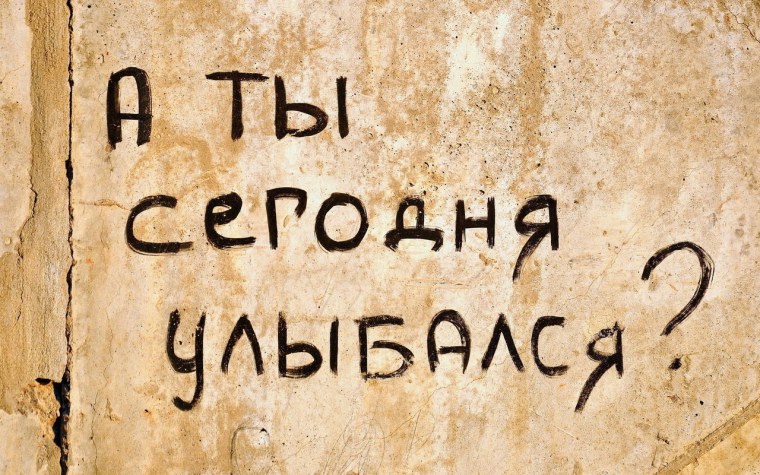 А ТЫ
сегодня
улыБАЛСЯ?